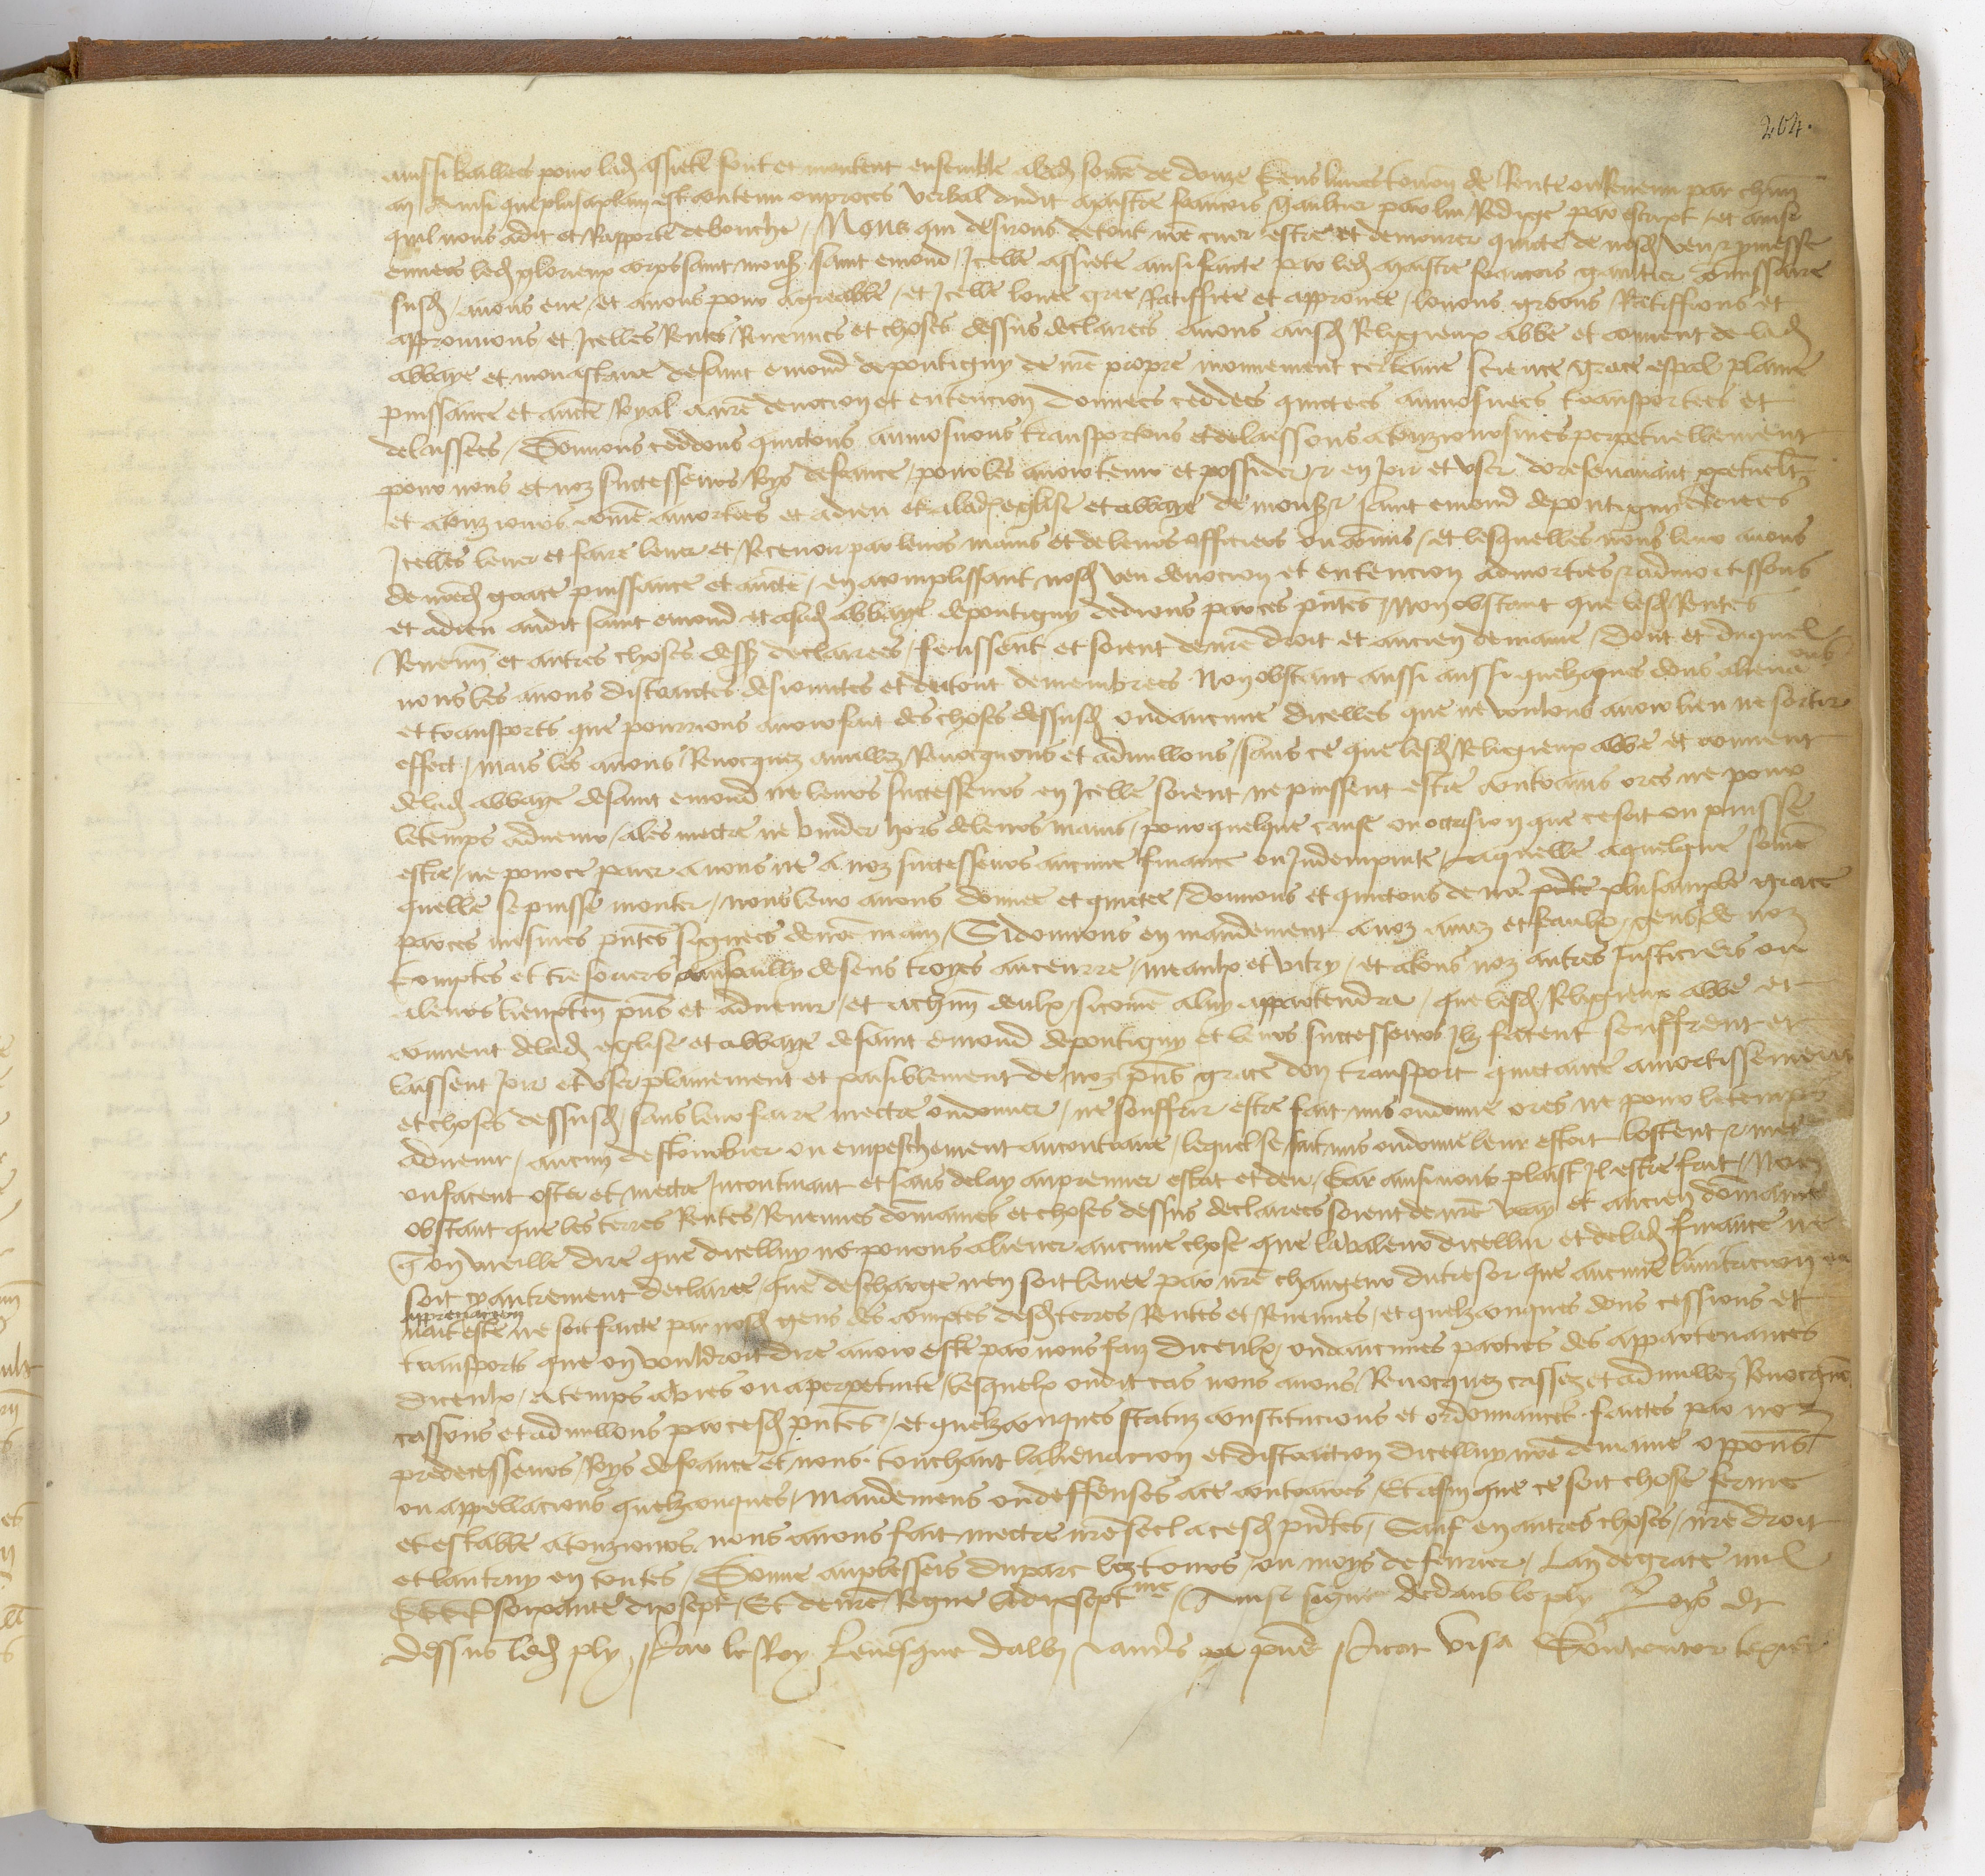 264.
aussi baillees pour lad assiete sont et montent ensemble alad some de douze cens livres tourn de Rente ou Revenu par chun
an Ainsi que plus aplain est contenu ou proces verbal dudit maistre francois gaultier par luy Redige par escript et ainsi
quil nous adit et Rapporte de bouche / Nous qui desirons de tout nre cuer estre et demourer quicte de nosd veu et promesse
envers led glorieux corps saint monsr saint emond / Icelle assiete ainsi faicte par led maistre francois gaultier comissaire
susd / avons eue / et avons pour agreable / et Icelle louee gree Ratiffiee et approuvee / louons greons Ratiffions et
approuvons et Icelles Rentes Revenues et choses dessus declarees avons ausd Religieux abbe et couvent de lad
abbaye et monastaire de saint emond de pontigny de nre propre mouvement certaine science grace espal plaine
puissance et aucte Royal a nre devocion et entencion donnees ceddees quictees aumosnees transportees et
delaissees / Donnons ceddons quictons aumosnons transportons et delaissons atousiours mes perpetuellement
pour nous et noz successeurs Roys de france / pour les avoir tenir et possider et en Joir et user doresenavant ppetuelt
et atousiours come amorties et adieu et alad eglise et abbaye de monsr saint emond de pontigny dediees
Icelles lever et faire lever et Recevoir par leurs mains et de leurs officiers ou comis / et lesquelles nous leur avons
de nred grace puissance et aucte / en acomplissant nosd veu devocion et entencion admorties et admortissons
et adieu audit saint emond et asad abbaye de pontigny dedions par ces pntes / Non obstant que lesd Rentes
Revenus et autres choses dessus declarees / feussent et soient de nre droit et ancien demaine / dont et duquel
nous les avons distraictes desjoinctes et du tout demembrees Non obstant aussi aussi quelzques dons alienacons
et transports que pourrions avoir fait des choses dessusd ou daucune dicelles que ne voulons avoir lieu ne sortir
effect / mais les avons Revocquez anullez Revocquons et adnullons / sans ce que lesd Religieux abbe et couvent
de lad abbaye de saint emond ne leurs successeurs en Icelle soient ne puissent estre contrains ores ne pour
le temps advenir / ales mectre ne vuider hors de leurs mains / pour quelque cause ou occasion que ce soit ou puisse
estre / ne pour ce paier a nous ne a noz successeurs aucune finance ou Indempnite / Laquelle a quelque some
quelle se puisse monter / nous leur avons donnee et quictee / donnons et quictons de nre plus ample grace
par ces mesmes pntes signees de nre main / Si donnons en mandement a noz amez et feaulx / gens de noz
comptes et tresoriers aux bailliz de sens troyes aucerre / meaulx et vitry / et atous noz autres Justiciers ou
aleurs lieuxten pns et advenir / et achun deulx / si come aluy appartendra / que lesd Religieux abbe et
couvent de lad eglise et abbaye de saint emond de pontigny et leurs successeurs Ilz facent seuffrent et
laissent Joir et user plainement et paisiblement de noz pns grace don transport quictance amortissement
et choses dessusd / sans leur faire mectre ou donner / ne souffrir estre fait mis ou donne ores ne pour le temps
advenir / aucun destourbier ou empeschement au contraire / lequel se fait mis ou donne leur estoit lostent et mect
ou facent oster et mectre Incontinant et sans delay au premier estat et deu / Car ainsi nous plaist Il estre fait / Non
obstant que les terres Rentes Revenues domaines et choses dessus declarees soient de nre vray et ancien domaine
q on vueille dire que dicelluy ne povons aliener aucune chose que la valeur dicelluy et de lad finance ne
soit cy autrement declaree que descharge nen soit levee par nre changeur du tresor que aucune limitacion ou
appreciacion
nait este ne soit faicte par nosd gens des comptes desd terres Rentes et Revenues / et quelzconques dons cessions et
transports que on vouldroit dire avoir este par nous faiz diceulx ou daucunes parties des appartenances
diceulx / A temps avies ou a perpetuite / lesquelx ou dit cas nous avons Revocquez cassez et adnullez Revocquons
cassons et adnullons par cesd pntes / et quelzconques statuz constitucions et ordonnances faictes par noz
predecesseurs Roys de france et nous touchant lalienacion et distraction dicelluy nre demaine oppons
ou appellacions quelzconques / mandemens ou deffenses ace contraires / Et afin que ce soit chose ferme
et estable atousiours nous avons fait mectre nre seel a cesd pntes / Sauf en autres choses / nre droit
et lautruy en toutes / Donne au plesseis du parc lez tours / ou moys de fevrier / Lan de grace mil
CCCC soixante dix sept / Et de nre Regne le dix septme / Ainsi signe dedans le ply Loys Et
dessus led ply / Par le Roy Levesque dalby et autrs pns Picot Visa Contentor texier